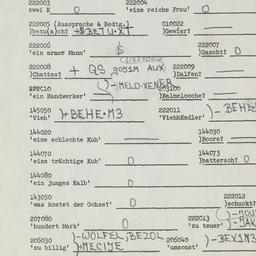 222003 222004
zwei K 0 'eine reiche Frau' 0
222005 (Aussprache & Bedtg.) 010022
)betu(a)ch? )Gevier?
222006
'ein armer Mann' $ 222007
)Gascht? 0
222008 222009
Chattes? + QS )Dalfen?
222010
'ein Handwerker' )-MELO-XENER )Balmelocche?
145050 222011
'Vieh' )+BEHE·M3 'Viehhändler' )-BEHE
144020 144030
'eine schlechte Kuh' )Bocre?
144070 144073
'eine trächtige Kuh' 0 )hattersch? 0
144080
'ein junges Kalb' 0
143050 222012
'was kostet der Ochse?' 0 )schuckt?
207080 222013
'hundert Mark' 0 'zu teuer'
206030 )-WOLFEL, BEZOL 206040
'zu billig' +MECIJE 'umsonst' )-BEXIN3